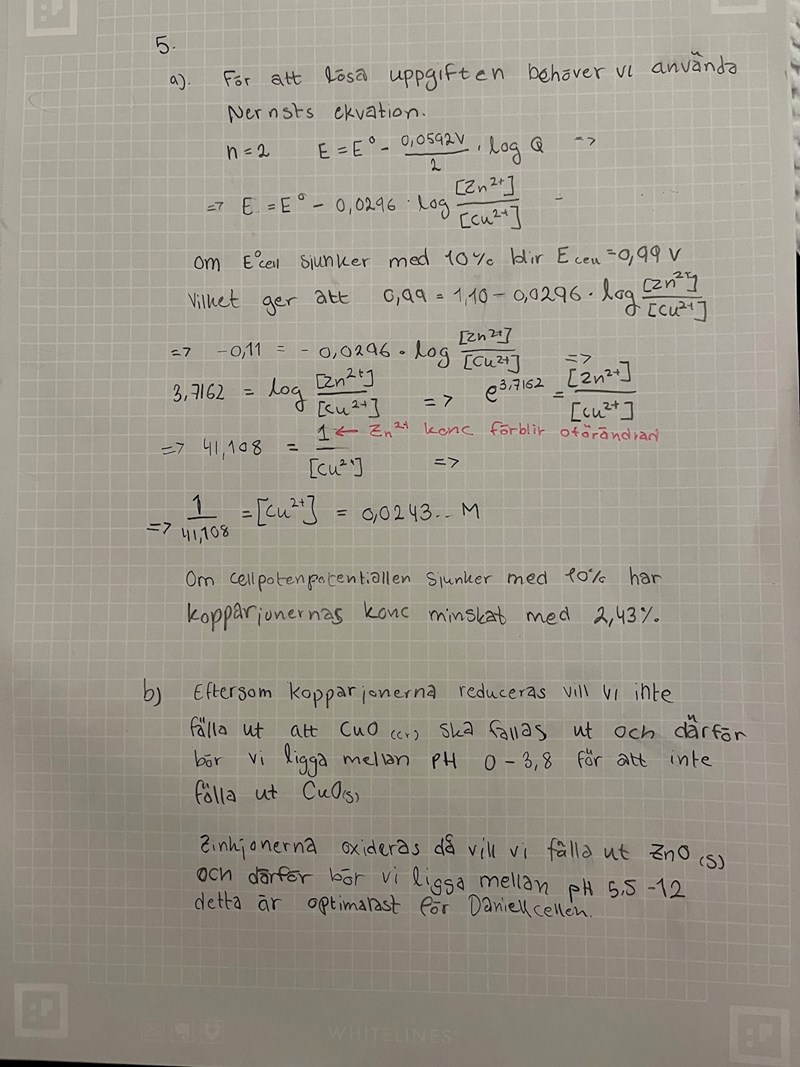 5.
a). För att lösa uppgiften behöver vi använda
Nernsts ekvation.
n=2 E = E° - 0,0592V/2 · log Q =>
=> E = E° - 0,0296 · log [Zn²⁺]/[Cu²⁺] -
Om E°cell sjunker med 10% blir Ecell = 0,99 V
Vilket ger att 0,99 = 1,10 - 0,0296 · log [Zn²⁺]/[Cu²⁺]
=> -0,11 = - 0,0296 · log [Zn²⁺]/[Cu²⁺] =>
3,7162 = log [Zn²⁺]/[Cu²⁺] => e^3,7162 = [Zn²⁺]/[Cu²⁺]
=> 41,108 = 1/[Cu²⁺] ← Zn²⁺ konc förblir oförändrad =>
=> 1/41,108 = [Cu²⁺] = 0,0243... M
Om cellpotenpotentiallen sjunker med 10% har
kopparjonernas konc minskat med 2,43%.
b) Eftersom kopparjonerna reduceras vill vi inte
fälla ut att CuO (cr) ska fällas ut och därför
bör vi ligga mellan pH 0-3,8 för att inte
fälla ut CuO(s)
Zinkjonerna oxideras då vill vi fälla ut ZnO (s)
och därför bör vi ligga mellan pH 5,5-12
detta är optimalast för Daniellcellen.
WHITELINES